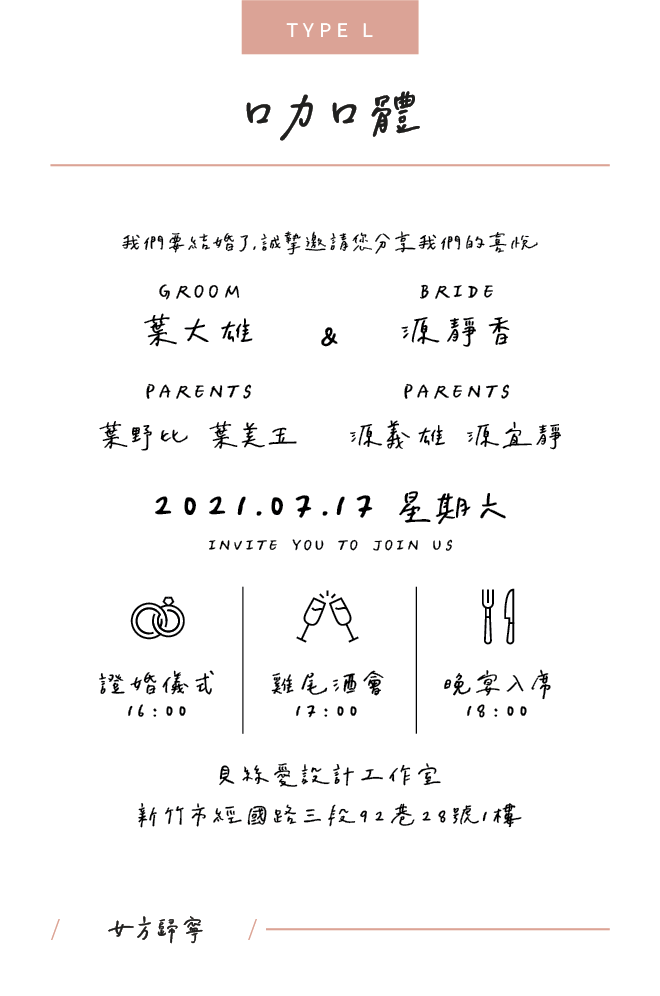 TYPE L
口力口體
我們要結婚了,誠摯邀請您分享我們的喜悅
GROOM BRIDE
葉大雄 & 源靜香
PARENTS PARENTS
葉野比 葉美玉 源義雄 源宜靜
2021.07.17 星期六
INVITE YOU TO JOIN US
證婚儀式 雞尾酒會 晚宴入席
16:00 17:00 18:00
貝絲愛設計工作室
新竹市經國路三段92巷28號1樓
/ 女方歸寧 /